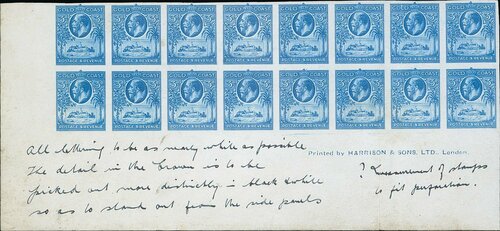 GOLD COAST GOLD COAST GOLD COAST GOLD COAST GOLD COAST GOLD COAST GOLD COAST GOLD COAST
POSTAGE & REVENUE POSTAGE & REVENUE POSTAGE & REVENUE POSTAGE & REVENUE POSTAGE & REVENUE POSTAGE & REVENUE POSTAGE & REVENUE POSTAGE & REVENUE
GOLD COAST GOLD COAST GOLD COAST GOLD COAST GOLD COAST GOLD COAST GOLD COAST GOLD COAST
POSTAGE & REVENUE POSTAGE & REVENUE POSTAGE & REVENUE POSTAGE & REVENUE POSTAGE & REVENUE POSTAGE & REVENUE POSTAGE & REVENUE POSTAGE & REVENUE
All lettering to be as nearly white as possible
The detail in the crown is to be
picked out more distinctly in black & white
so as to stand out from the side panels
Printed by HARRISON & SONS, LTD., London.
? measurement of stamps
to fit perforation.